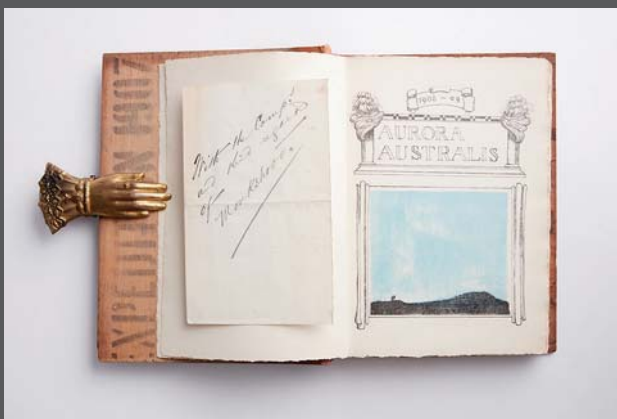 XPEDITION 1907
With the Compts
and kind regards
of
1908-09
AURORA
AUSTRALIS